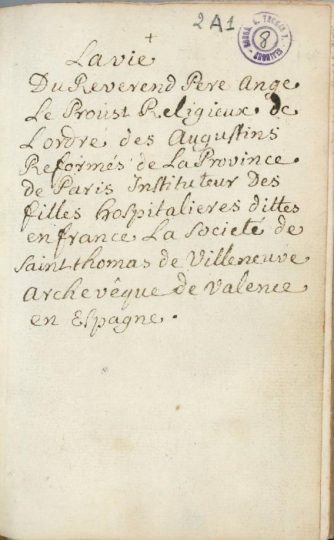 2A1
8
+
La vie
Du Reverend Pere Ange
Le Proust Religieux de
Lordre des Augustins
Reformés de La Province
de Paris Instituteur Des
filles hospitalieres dittes
en france La societé de
saint thomas de Villeneuve
archevêque de valence
en Espagne.